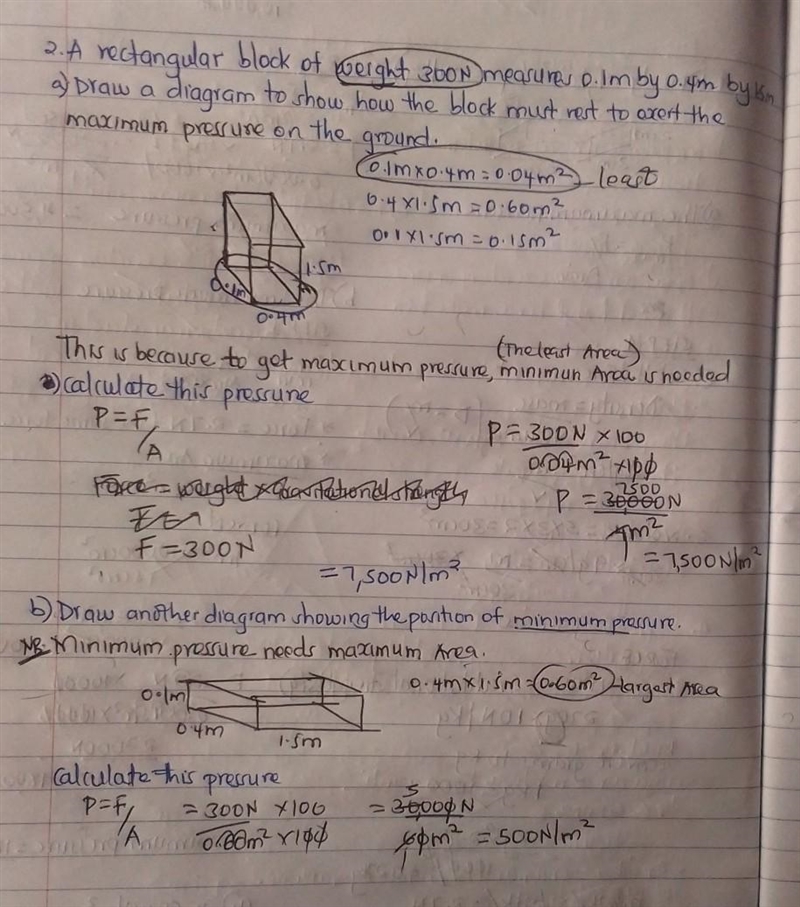 2. A rectangular block of weight 300N measures 0.1m by 0.4m by 1.5m
a) Draw a diagram to show how the block must rest to exert the
maximum pressure on the ground.
0.1m x 0.4m = 0.04m² - least
0.4 x 1.5m = 0.60m²
0.1 x 1.5m = 0.15m²
1.5m
0.1m
0.4m
This is because to get maximum pressure, minimun Area is needed
(The least Area)
a) Calculate this pressure
P = F/A
P = 300N x 100
0.04m² x 100
Force = weight x Gravitational strength
P = 30000N
7500
1m²
F = 300N
= 7,500N/m²
= 7,500N/m²
b) Draw another diagram showing the position of minimum pressure.
NB. Minimum pressure needs maximum Area.
0.1m
0.4m x 1.5m = 0.60m² - largest Area
0.4m
1.5m
Calculate this pressure
P = F/A = 300N x 100 = 30000N
5
0.60m² x 100 60m² = 500N/m²
1